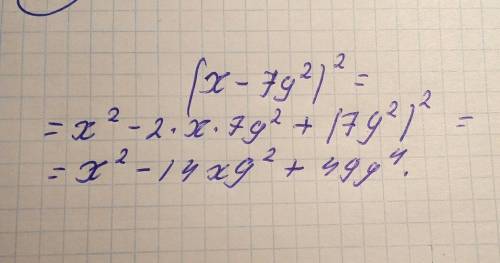 (x - 7y²)² =
= x² - 2 · x · 7y² + (7y²)² =
= x² - 14xy² + 49y⁴.